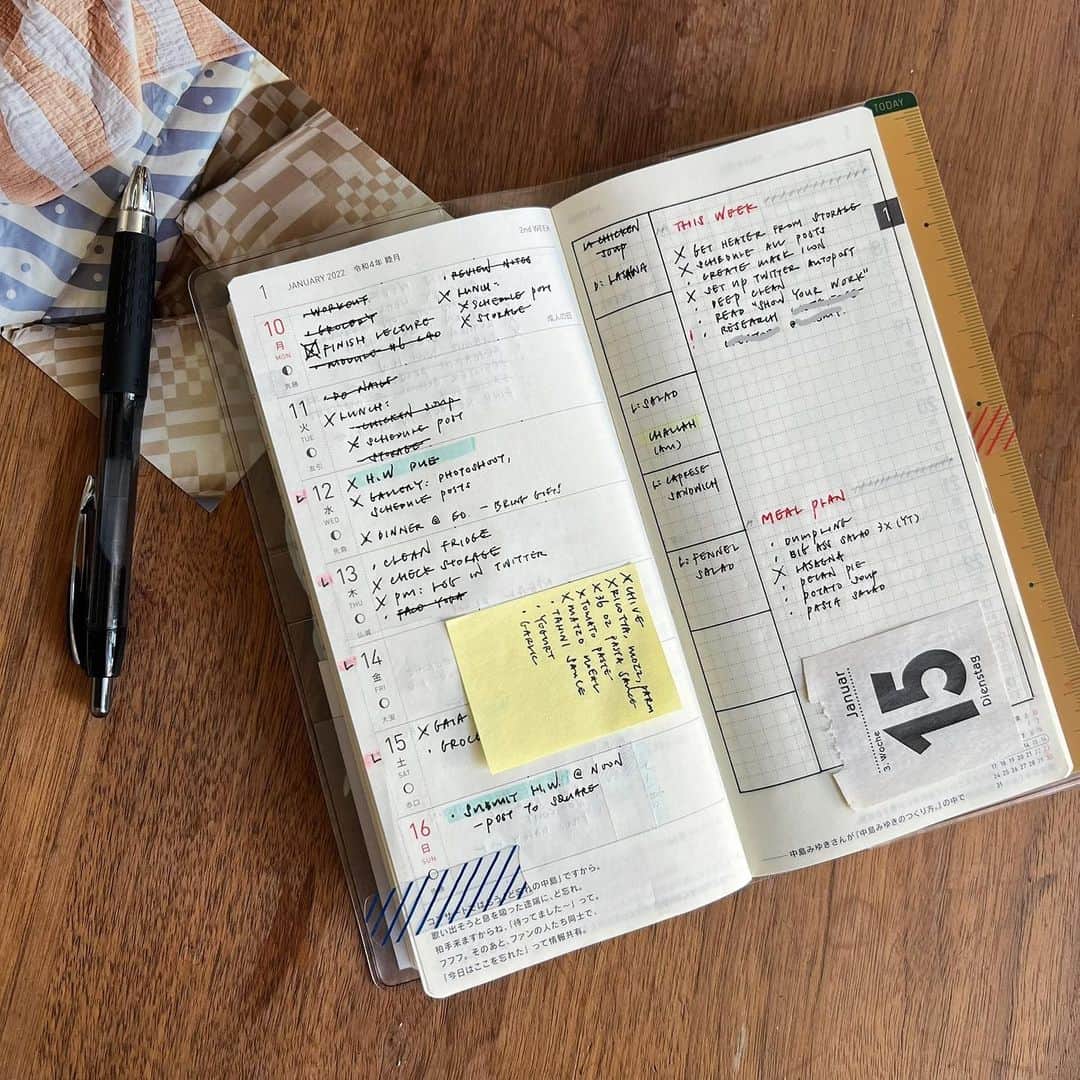 2nd WEEK
1 JANUARY 2022 令和4年 睦月
10
月
MON
先勝
成人の日
· WORKOUT
· GROCERY
FINISH LECTURE
· MODULE #6 CAD
· REVIEW NOTES
X LUNCH:
X SCHEDULE POST
X STORAGE
11
火
TUE
友引
· DO NAILS
X LUNCH:
CHICKEN SOUP
X SCHEDULE POST
· STORAGE
12
水
WED
先負
X H.W DUE
X GALLERY: PHOTOSHOOT,
X SCHEDULE POSTS
X DINNER @ EO. - BRING GIFTS!
13
木
THU
仏滅
· CLEAN FRIDGE
X CHECK STORAGE
X PM: LOG IN TWITTER
· FACE YOGA
14
金
FRI
大安
15
土
SAT
赤口
X GAIA
· GROCE
16
日
SUN
· SUBMIT H.W. @ NOON
- POST TO SQUARE
X CHIVE
X RICOTTA, MOZZ, PARM
X 36 OZ PASTA SAUCE
X TOMATO PASTE
X MATZO MEAL
· TAHINI SAUCE
· YOGURT
· GARLIC
の中島」ですから。
歌い出そうと息を吸った途端に、ど忘れ。
拍手来ますからね、「待ってました〜」って。
フフフ。そのあと、ファンの人たち同士で、
「今日はここを忘れた」って情報共有。
TODAY
1
L: CHICKEN
SOUP
D: LASAGNA
L: SALAD
CHALLAH
(AM)
L: CAPRESE
SANDWICH
L: FENNEL
SALAD
THIS WEEK
X GET HEATER FROM STORAGE
X SCHEDULE ALL POSTS
X CREATE MARK ICON
X SET UP TWITTER AUTOPOST
· DEEP CLEAN
· READ "SHOW YOUR WORK"
! · RESEARCH
MEAL PLAN
· DUMPLING
· BIG ASS SALAD 3X (YT)
X LASAGNA
· PECAN PIE
· POTATO SOUP
· PASTA SALAD
3. Woche
Januar
15
Dienstag
14 15
17 18 19 20 21 22 23
24 25 26 27 28 29 30
31
——中島みゆきさんが『中島みゆきのつくり方。』の中で